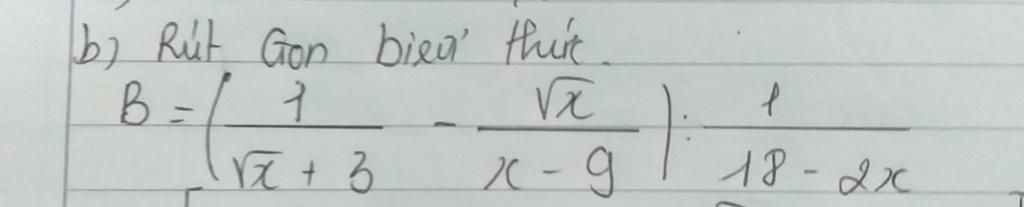 b) Rút Gọn biểu thức.
B = ( 1/(√x + 3) - √x/(x - 9) ) : 1/(18 - 2x)